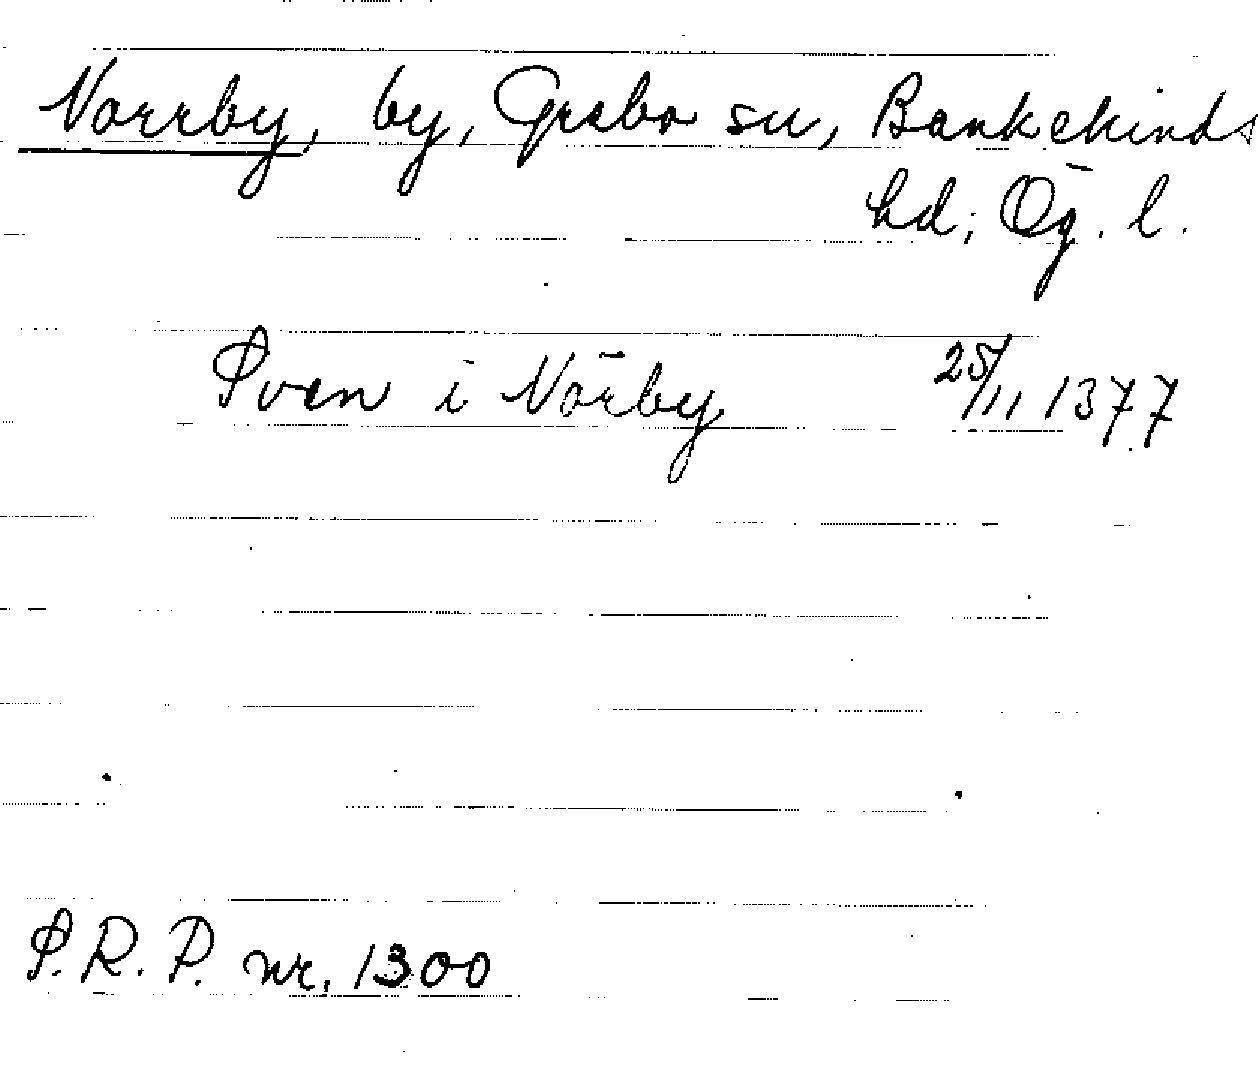 Norrby, by, Grebo sn, Bankekinds
hd; Ög. l.
Sven i Nörby 25/11 1377
S.R.P. nr. 1300